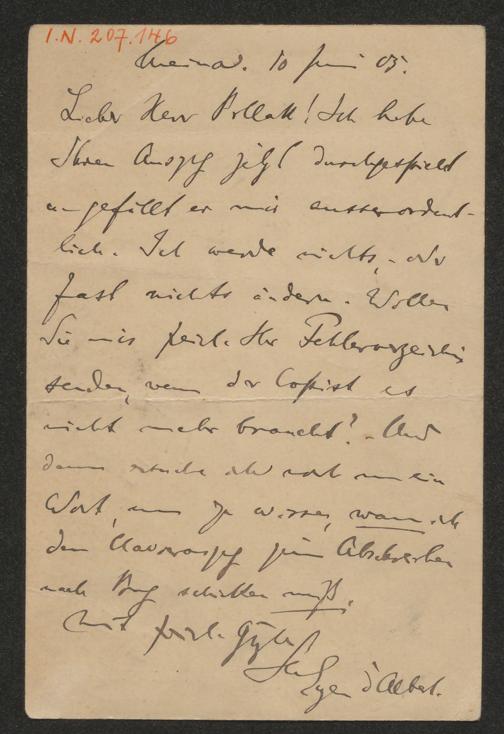 I.N. 207.146
Meina. 10 Juni 05.
Lieber Herr Pollak! Ich habe
Ihren Auszug jetzt durchgespielt
u. gefällt er mir ausserordent-
lich. Ich werde nichts, oder
fast nichts ändern. Wollen
Sie mir frdl. Ihr Fehlerverzeichnis
senden, wenn der Copist es
nicht mehr braucht? Und
dann ersuche ich noch um ein
Wort, um zu wissen, wann ich
den Clavierauszug zum Abschreiben
nach Prag schicken muß.
Mit frdl. Grüßen
Ihr
Eugen d'Albert.